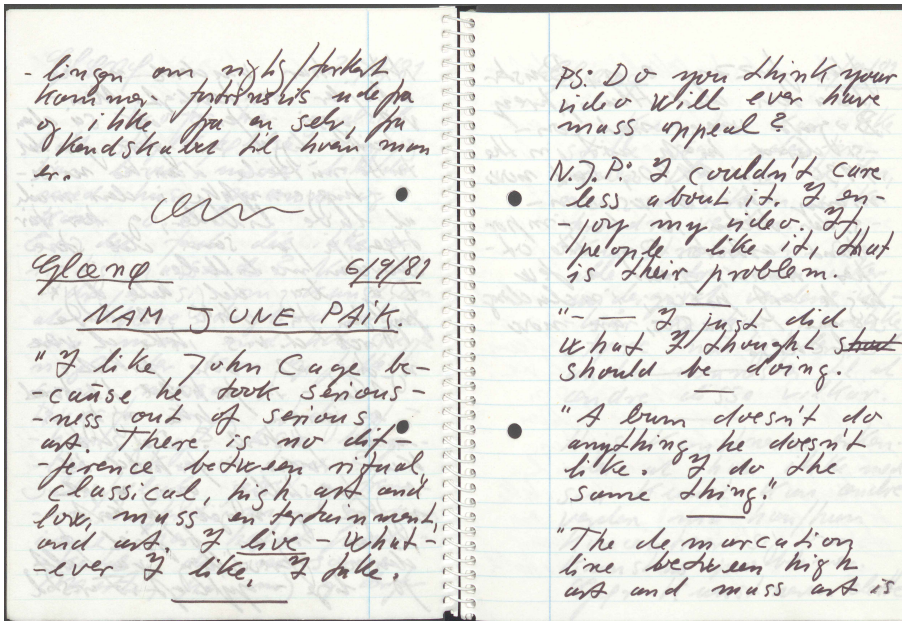 - lingen om rigtig/forkert
kommer fortrinsvis udefra
og ikke fra en selv, fra
kendskabet til hvem man
er.
Glænø 6/9/81
NAM JUNE PAIK.
"I like John Cage be-
-cause he took serious-
-ness out of serious
art. There is no dif-
-ference between ritual,
classical, high art and
low, mass entertainment,
and art. I live - what-
-ever I like, I take.
PS: Do you think your
video will ever have
mass appeal?
N.J.P: I couldn't care
less about it. I en-
-joy my video. If
people like it, that
is their problem.
"- — I just did
what I thought
should be doing.
"A bum doesn't do
anything he doesn't
like. I do the
same thing."
"The demarcation
line between high
art and mass art is